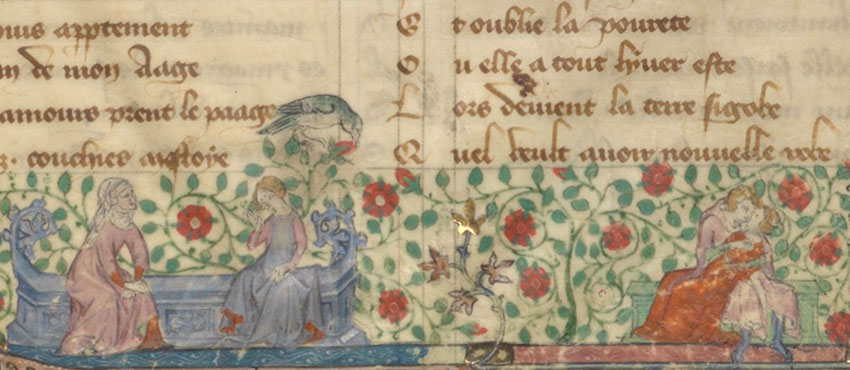 puis apptement
an de mon Aage
amours prent le paage
couchies mestoye
E t oublie la pourete
O u elle a tout lyuer este
L ors deuient la terre si gobe
Q uel veult auoir nouuelle robe